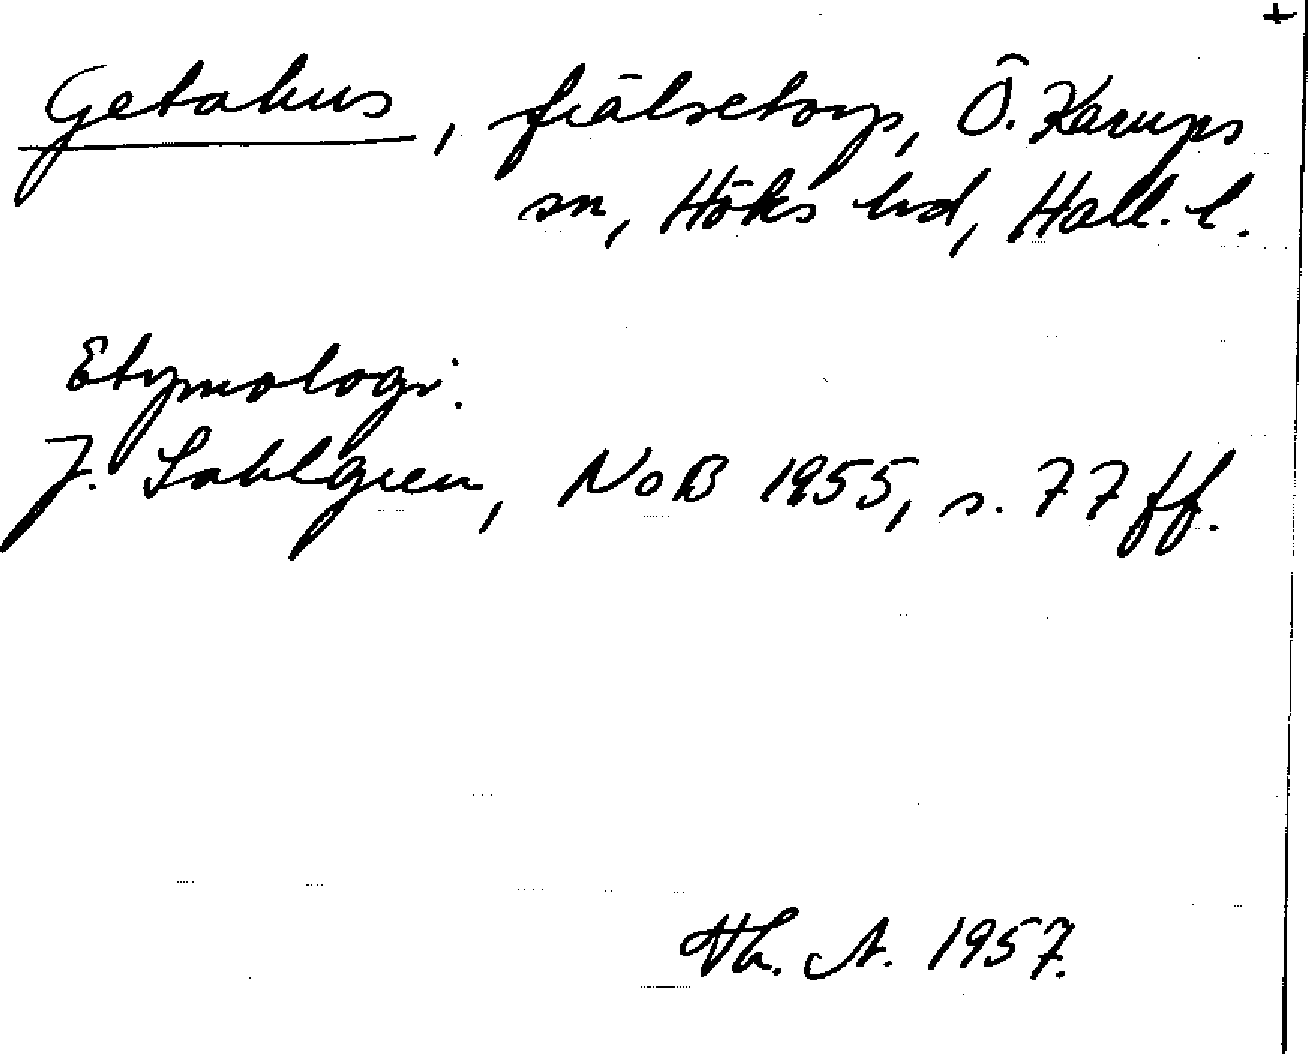 +
Getahus, frälsetorp, Ö. Karups
sn, Höks hd, Hall. l.
Etymologi:
J. Sahlgren, NoB 1955, s. 77 ff.
Th. A. 1957.